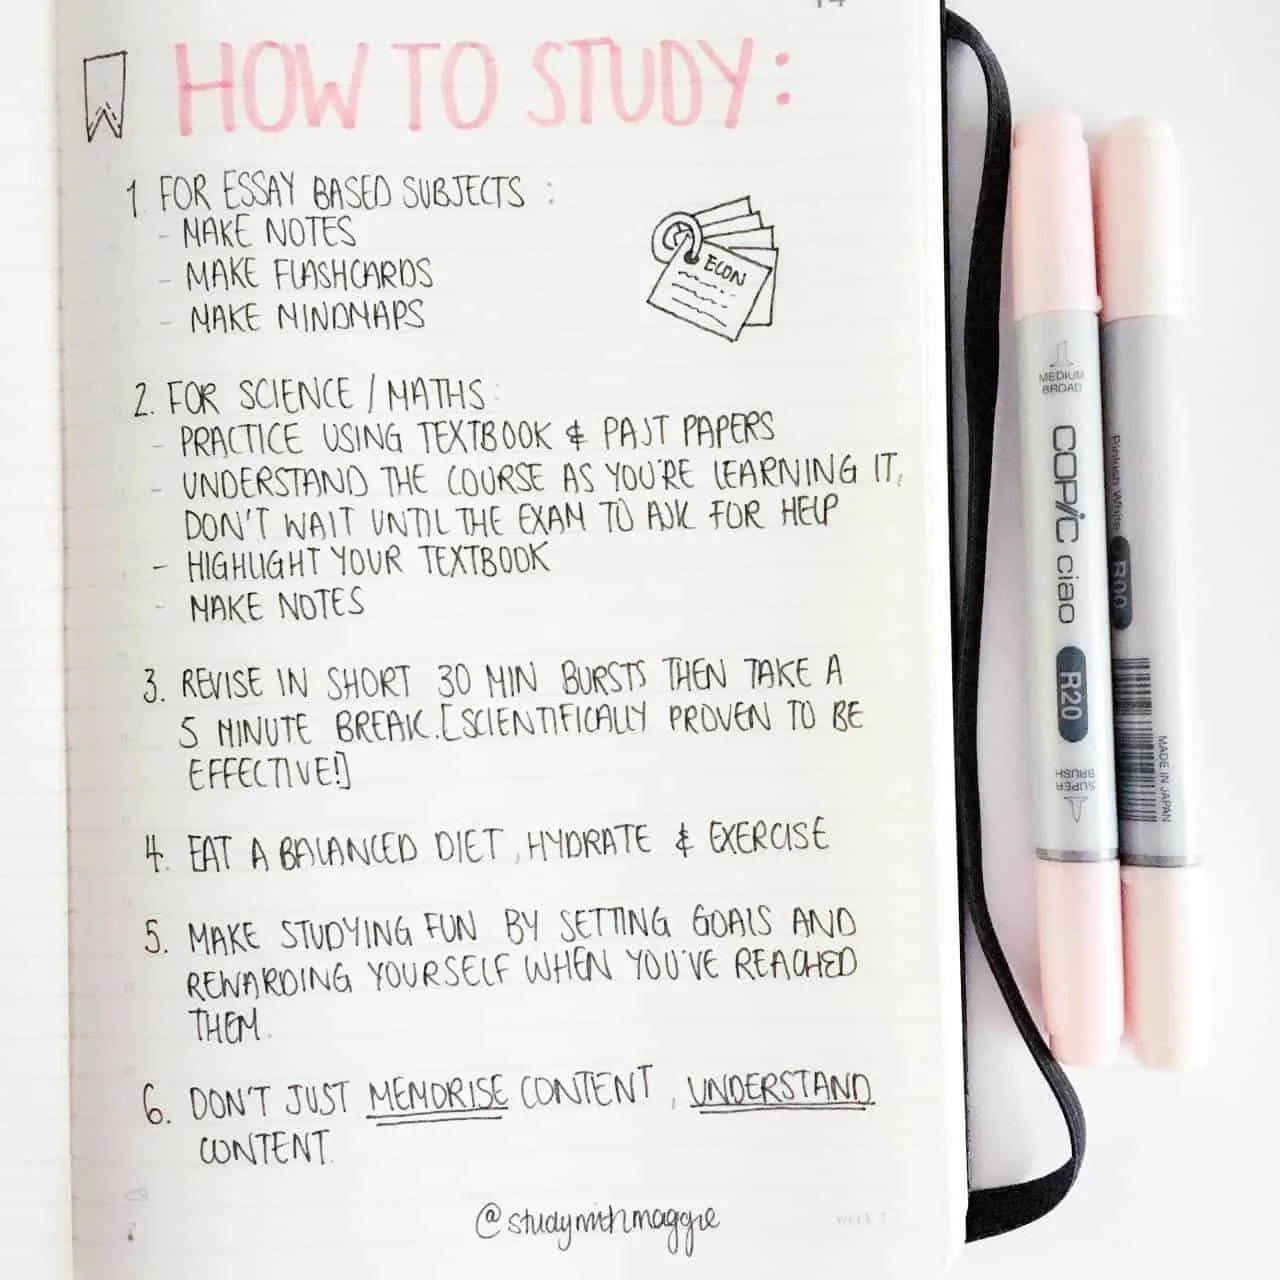 14
HOW TO STUDY:
1. FOR ESSAY BASED SUBJECTS :
- MAKE NOTES
- MAKE FLASHCARDS
- MAKE MINDMAPS
ECON
2. FOR SCIENCE / MATHS:
- PRACTICE USING TEXTBOOK & PAST PAPERS
- UNDERSTAND THE COURSE AS YOU'RE LEARNING IT,
DON'T WAIT UNTIL THE EXAM TO ASK FOR HELP
- HIGHLIGHT YOUR TEXTBOOK
- MAKE NOTES
3. REVISE IN SHORT 30 MIN BURSTS THEN TAKE A
5 MINUTE BREAK. [SCIENTIFICALLY PROVEN TO BE
EFFECTIVE!]
4. EAT A BALANCED DIET, HYDRATE & EXERCISE
5. MAKE STUDYING FUN BY SETTING GOALS AND
REWARDING YOURSELF WHEN YOU'VE REACHED
THEM.
6. DON'T JUST MEMORISE CONTENT, UNDERSTAND
CONTENT.
@studywithmaggie
week
MEDIUM
BROAD
COPIC ciao
R20
SUPER
BRUSH
Pinkish White
R00
MADE IN JAPAN